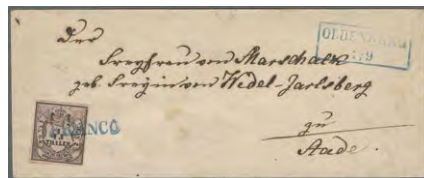 Der
OLDENBURG
1/9
Freyfrau von Marschalk
geb. Freyin von Wedel-Jarlsberg
FRANCO
THALER
zu
Stade.